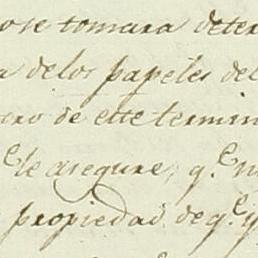 ose tomara deter
a delos papeles del
ero de este termin
e le asegure, q.e n
propiedad de q.e y